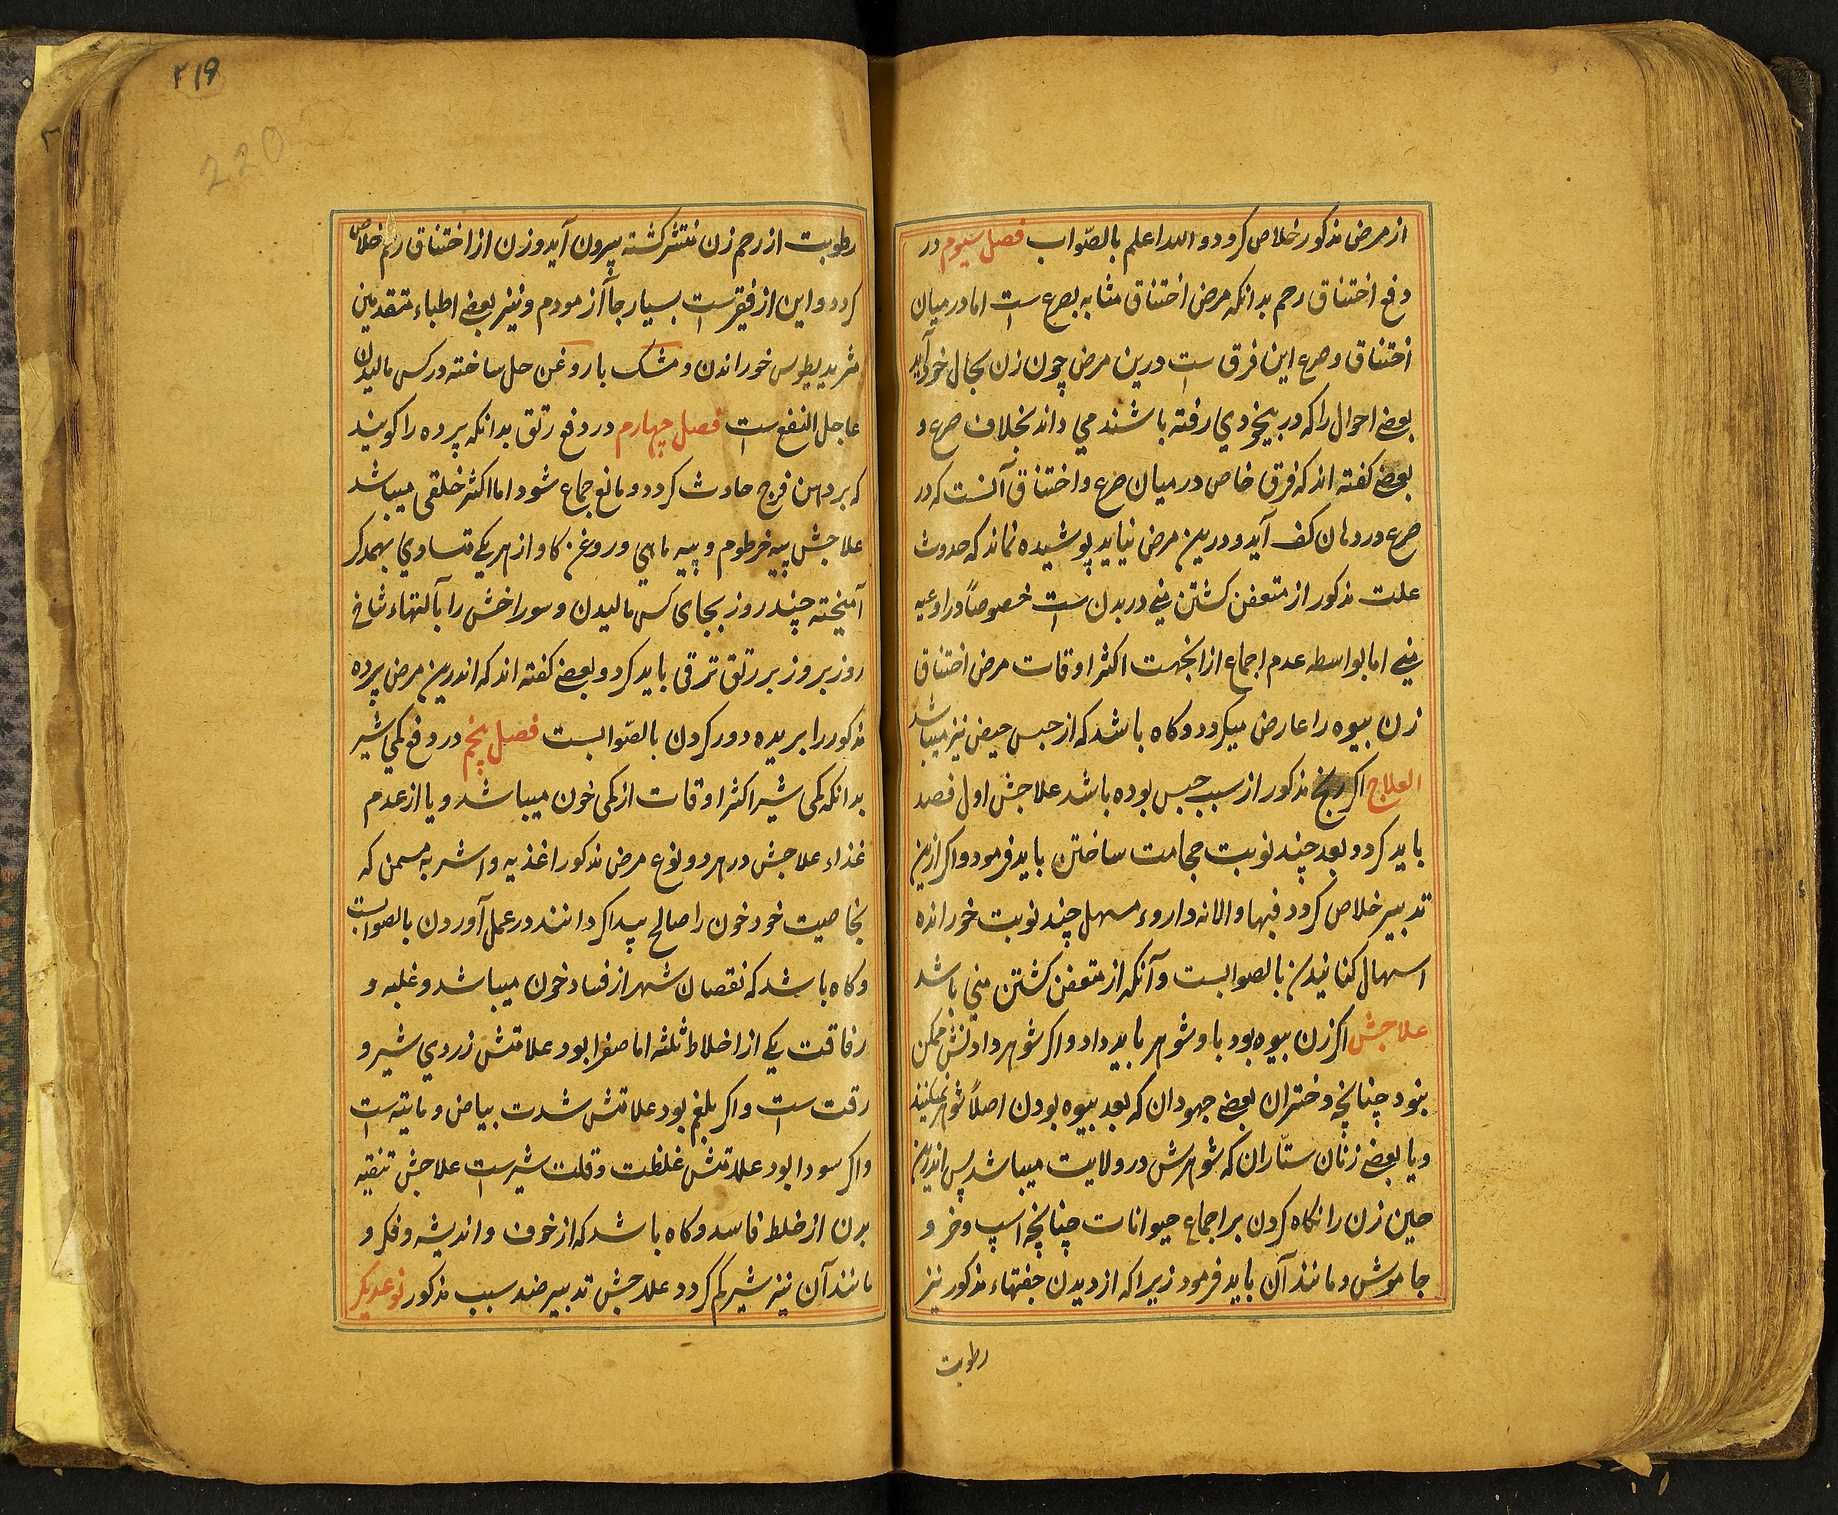 از مرض مذکور خلاص کردد و الله اعلم بالصّواب فصل سیوم در
دفع اختناق رحم بدانکه مرض اختناق مشابه بصرع است اما در میان
اختناق و صرع این فرق است درین مرض چون زن بحال خود آید
بعضے احوال را که در بیخودي رفته باشند مي داند بخلاف صرع و
بعضے کفته اند که فرق خاص در میان صرع و اختناق آنست که در
صرع در دهان کف آید و درین مرض نیاید پوشیده نماند که حدوث
علت مذکور از متعفن کشتن منے در بدن است خصوصاً در اوعیه
منے اما بواسطه عدم اجماع ازانجهت اکثر اوقات مرض اختناق
زن بیوه را عارض میکردد و کاه باشد که از حبس حیض نیز میباشد
العلاج اکر رنج مذکور از سبب حبس بوده باشد علاجش اول فصد
باید کرد و بعد چند نوبت حجامت ساختن باید فرمود و اکر ازین
تدبیر خلاص کردد فبها و الا نه داروء مسهل چند نوبت خورانده
اسهال کنانیدن بالصوابست و آنکه از متعفن کشتن مني باشد
علاجش اکر زن بیوه بود باو شوهر باید داد و اکر شوهر دادنش ممکن
بنود چنانچه دختران بعضے جهودان که بعد بیوه بودن اصلاً شوهر نمیکنند
و یا بعضے زنان ستّاران که شوهرش در ولایت میباشد پس اندرین
حین زن را نکاه کردن بر اجماع حیوانات چنانچه اسپ و خر و
جاموش و مانند آن باید فرمود زیرا که از دیدن جفتهاء مذکور نیز
رطوبت
۲۱۹
220
رطوبت از رحم زن منتشر کشته بیرون آید و زن از اختناق رحم خلاص
کردد و این از فقیر است بسیار جا آزمودم و نیز بعضے اطباء متقدمین
مثریدیطوس خوراندن و مشک با روغن حل ساخته در کس مالیدن
عاجل النفع است فصل چهارم در دفع رتق بدانکه پرده را کویند
که بر دهن فرج حادث کردد و مانع جماع شود اما اکثر خلقی میباشد
علاجش پیه خرطوم و پیه ماهي و روغن کاو از هر یکے متساوي بهمدکر
آمیخته چند روز بجای کس مالیدن و سوراخش را بآلتهاء شاخ
روز بروز بر رتق ترقی باید کرد و بعضے کفته اند که اندرین مرض پرده
مذکور را بریده دور کردن بالصّوابست فصل پنجم در دفع کمي شیر
بدانکه کمی شیر اکثر اوقات از کمی خون میباشد و یا از عدم
غذاء علاجش در هر دو نوع مرض مذکور اغذیه و اشربه مسمن که
بخاصیت خود خون را صالح پیدا کردانند در عمل آوردن بالصوابست
و کاه باشد که نقصان شهر از فساد خون میباشد و غلبه و
رفاقت یکے از اخلاط ثلثه اما صفرا بود علامتش زردي شیر و
رقت است و اکر بلغم بود علامتش شدت بیاض و مایته است
و اکر سودا بود علامتش غلظت و قلت شیرست علاجش تنقیه
بدن از خلط فاسد و کاه باشد که از خوف و اندیشه و فکر و
مانند آن نیز شیر کم کردد علاجش تدبیر ضد سبب مذکور نوعدیکر